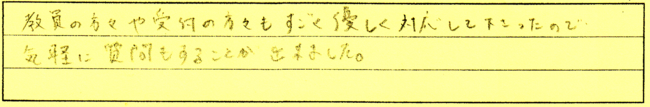 教員の方々や受付の方々もすごく優しく対応して下さったので
気軽に質問もすることが出来ました。